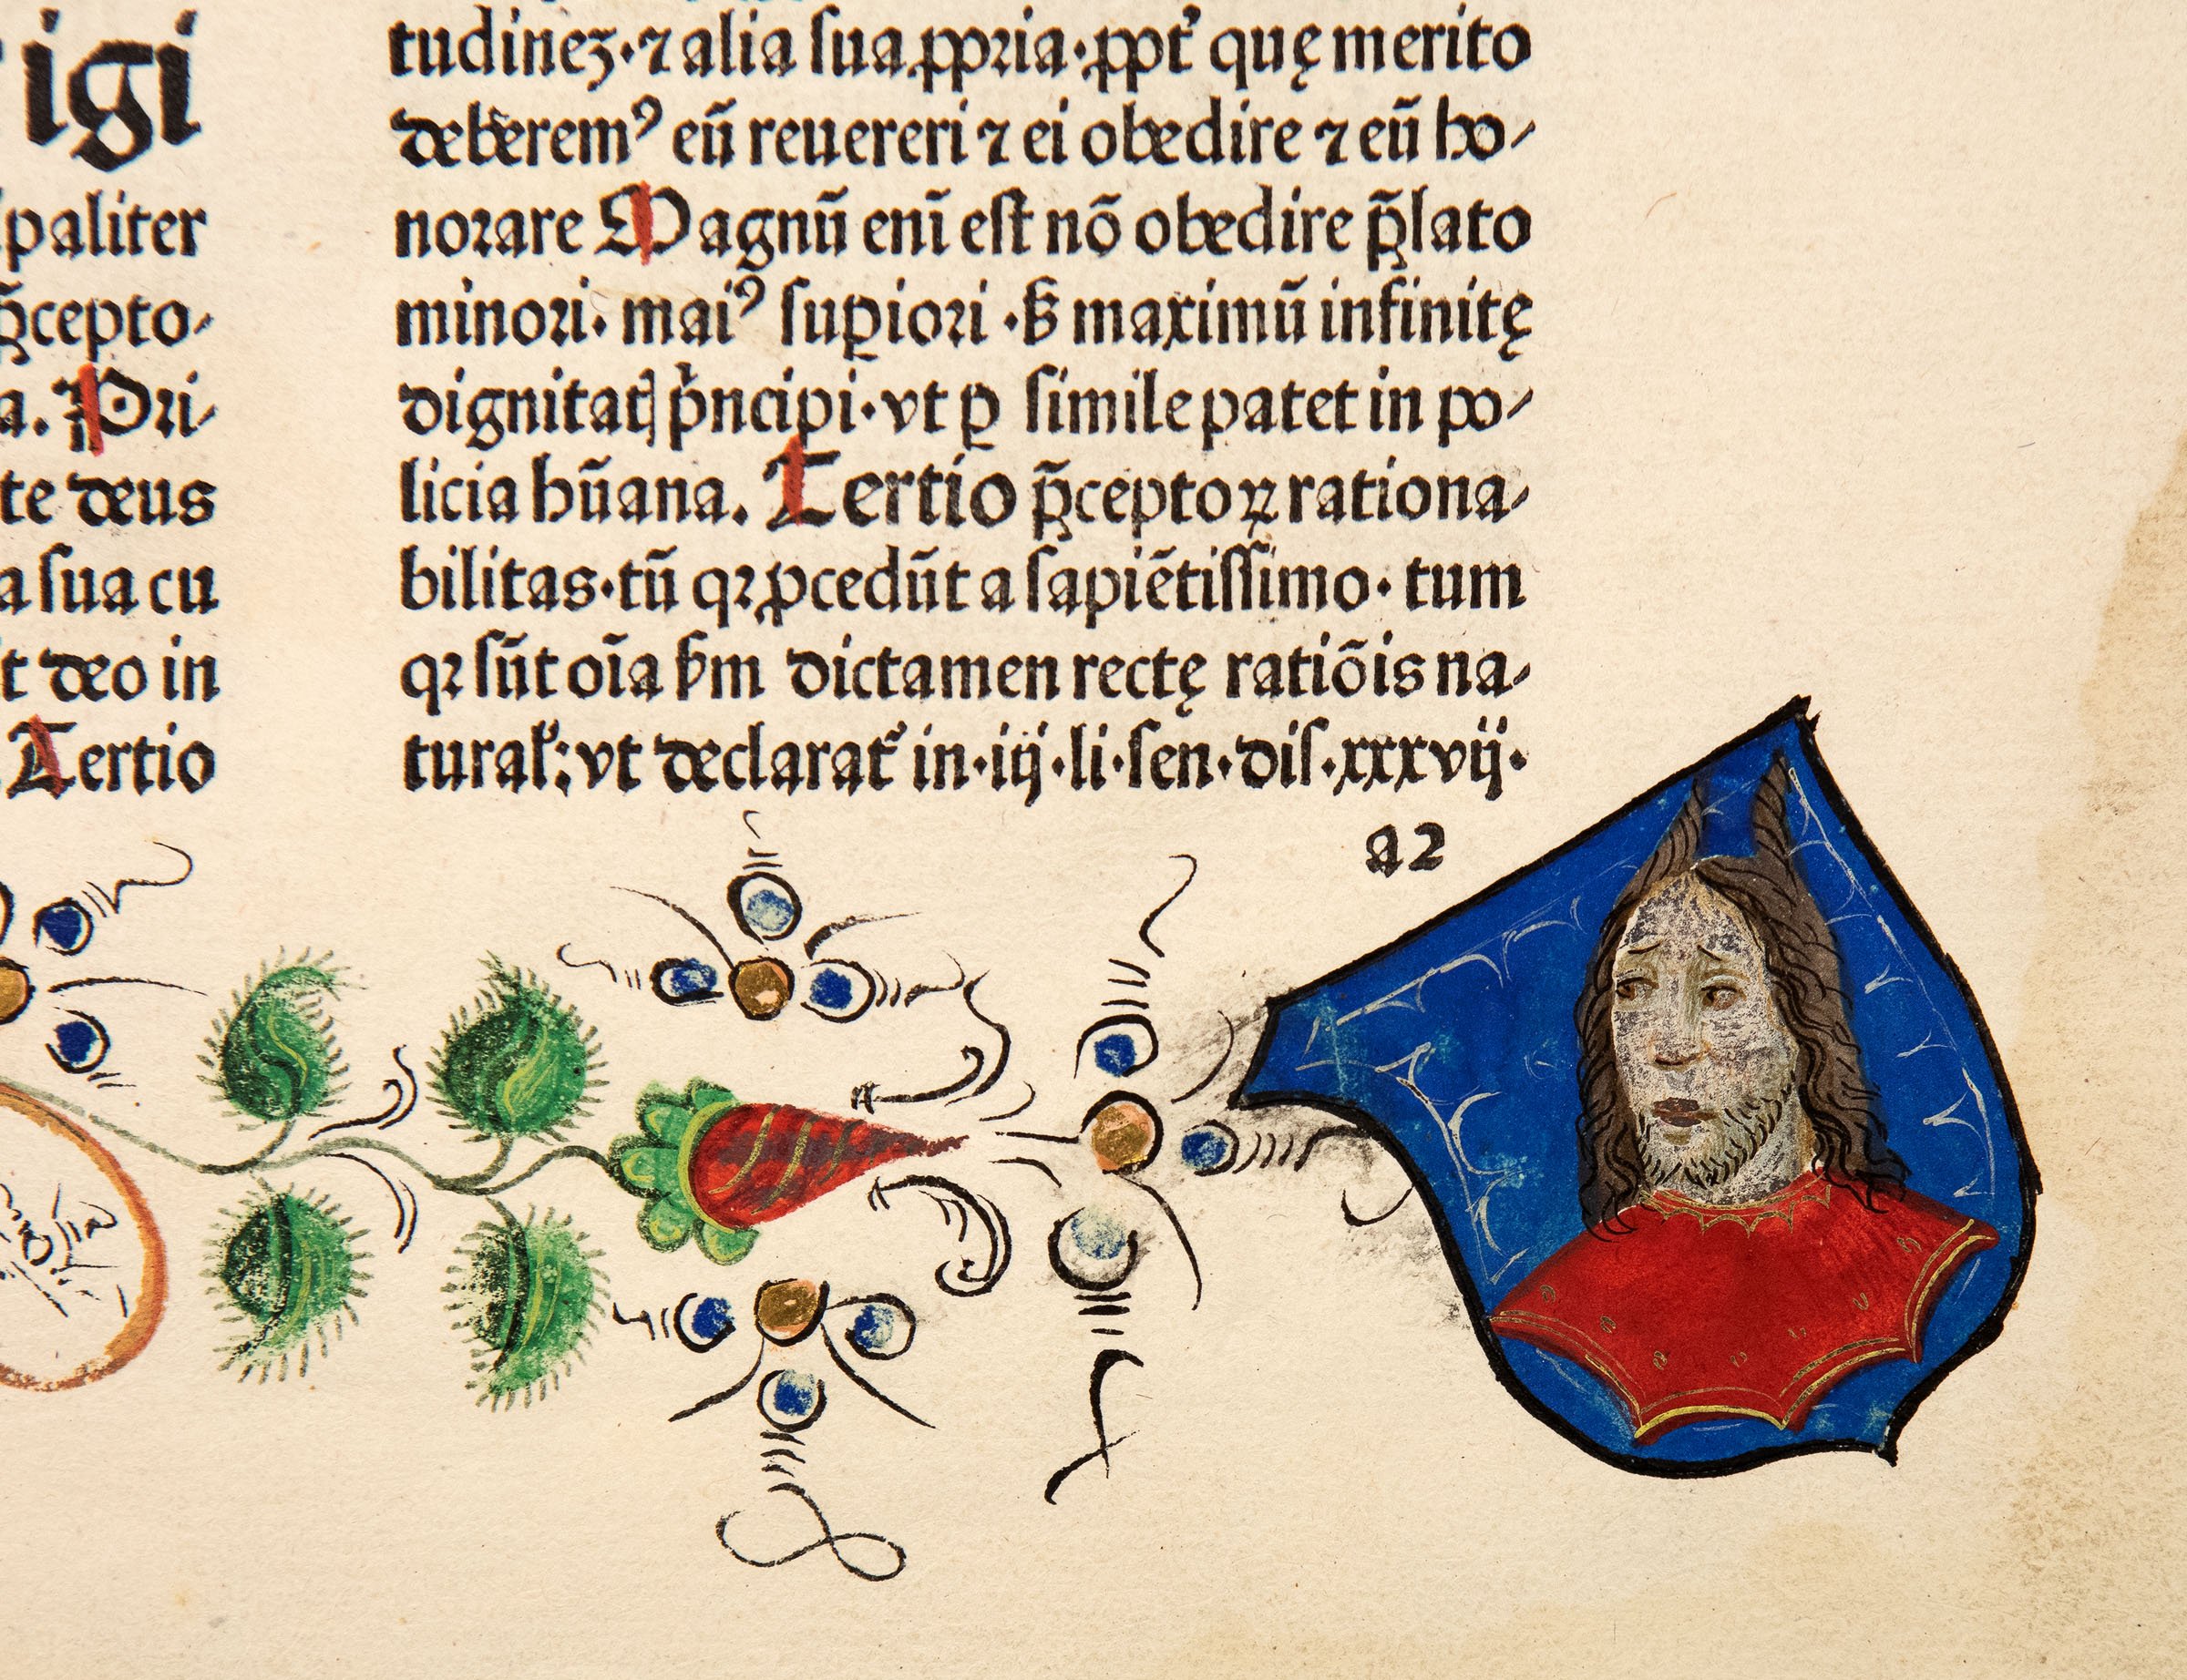 igi
paliter
p̄cepto⸗
a. Pri⸗
te deus
a ſua cu
t deo in
Tertio
tudinez·⁊ alia ſua ꝓpria·ꝓpt᷑ quę merito
deberemꝰ eū reuereri ⁊ ei obedire ⁊ eū ho⸗
norare Magnū enī eſt nō obedire p̄lato
minori· maiꝰ ſuꝑiori ·ẜ maximū infinitę
dignitatꝭ pͥncipi·vt ꝑ ſimile patet in po⸗
licia hūana. Tertio p̄ceptoꝝ rationa⸗
bilitas·tū qꝛ ꝓcedūt a ſapiētiſſimo· tum
qꝛ ſūt oīa ẜm dictamen rectę ratiōis na⸗
turaƚ:vt declarat᷑ in·iij·li·ſen·diſ·xxxvij·
a2